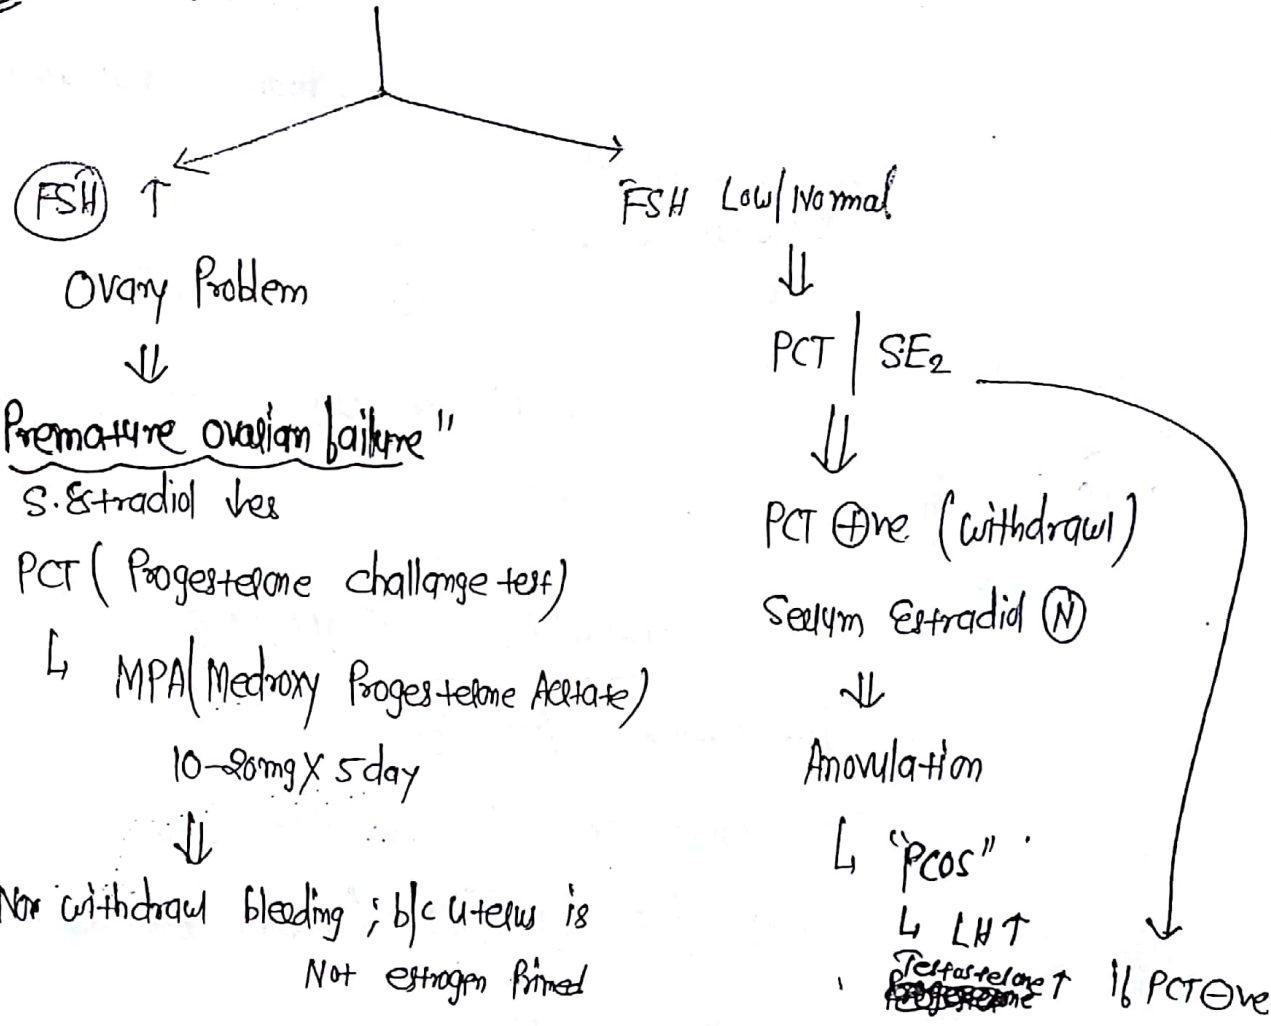 FSH ↑
Ovary Problem
⇓
Premature ovarian failure"
S. Estradiol ↓es
PCT ( Progesterone challange test)
↳ MPA ( Medroxy Progesterone Acetate)
10-20mg X 5 day
⇓
withdrawl bleeding ; b/c uterus is
Not estrogen Primed
FSH Low/Normal
⇓
PCT | SE₂
⇓
PCT ⊕ve (withdrawl)
Serum Estradiol Ⓝ
⇓
Anovulation
↳ "PCOS"
↳ LH ↑
Testosterone ↑
If PCT ⊖ve